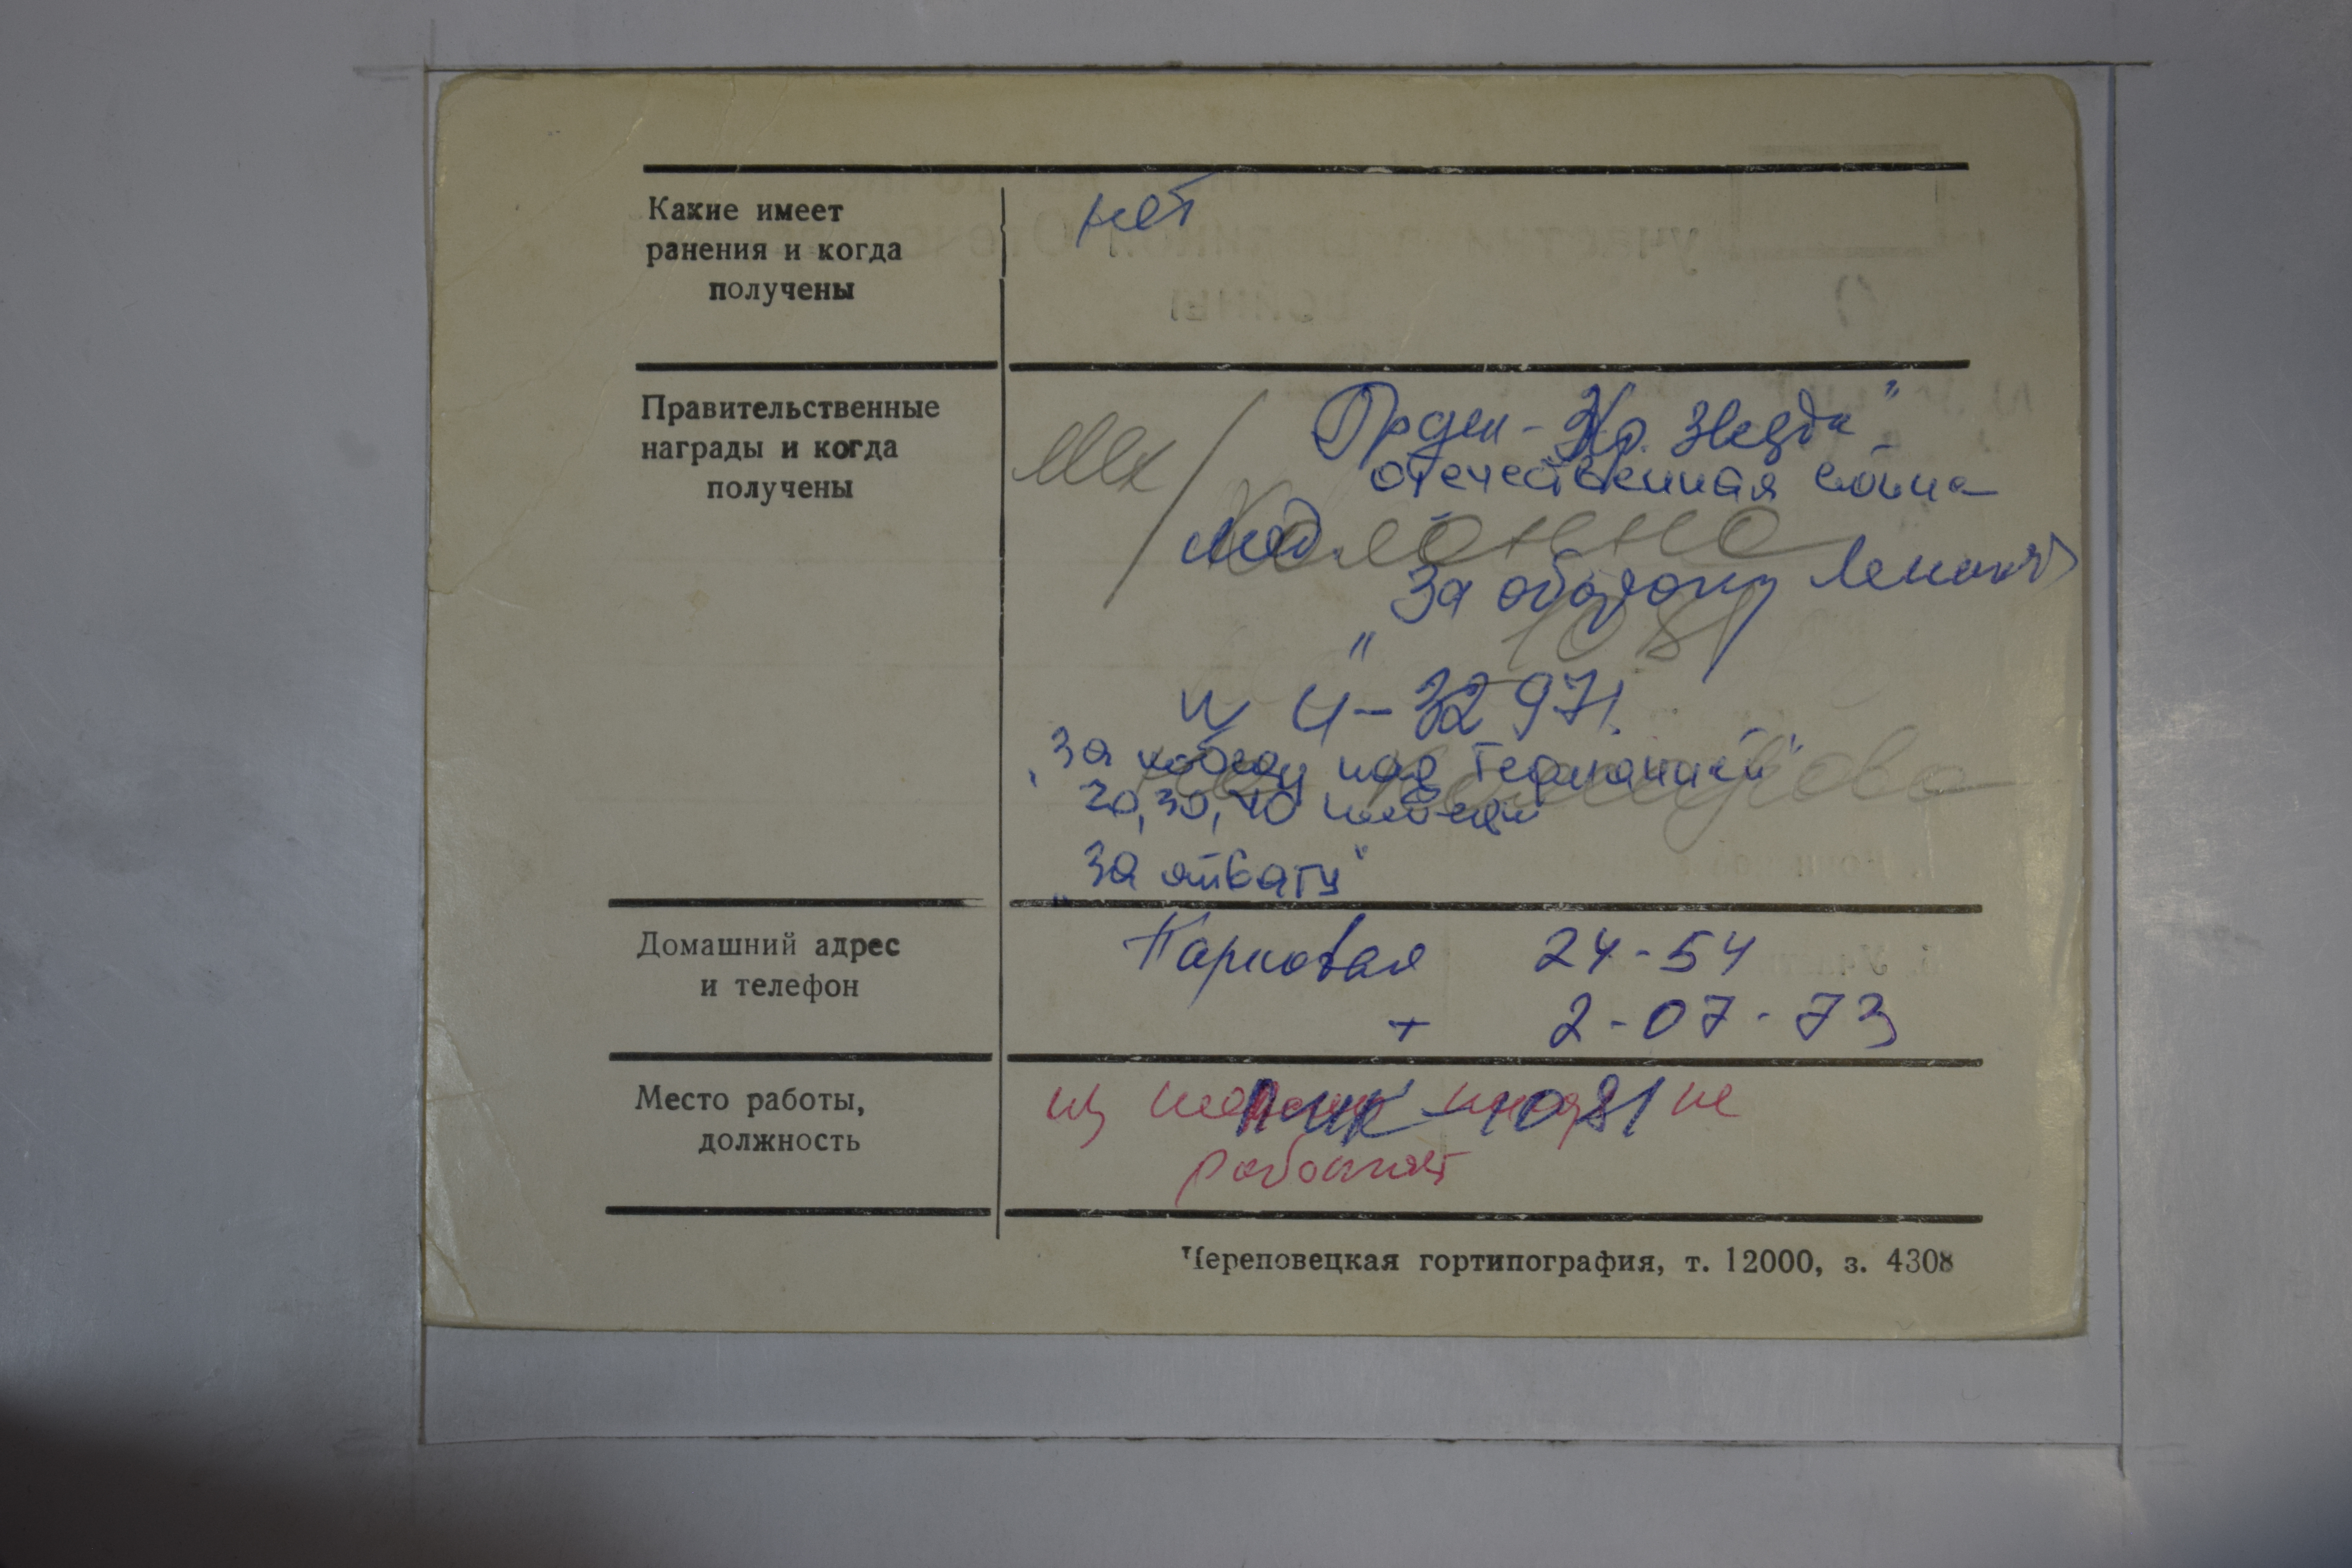 Какие имеет
ранения и когда
получены
нет
Правительственные
награды и когда
получены
Орден - Кр. Звезда"-
отечественная война
мед.
За оборону
"
И Ч-32971.
"За победу над Германией"
20, 30, 40
"За отвагу"
колонна
1081
Домашний адрес
и телефон
Парковая 24-54
т 2-07-73
Место работы,
должность
ПМК-1081
не
работает
Череповецкая гортипография, т. 12000, з. 4308